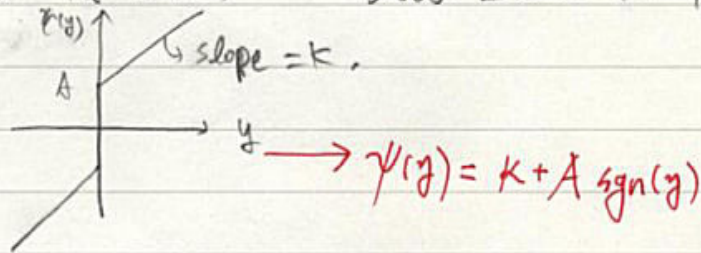 ψ(y)
slope = K.
A
y
→ ψ(y) = K + A sgn(y)